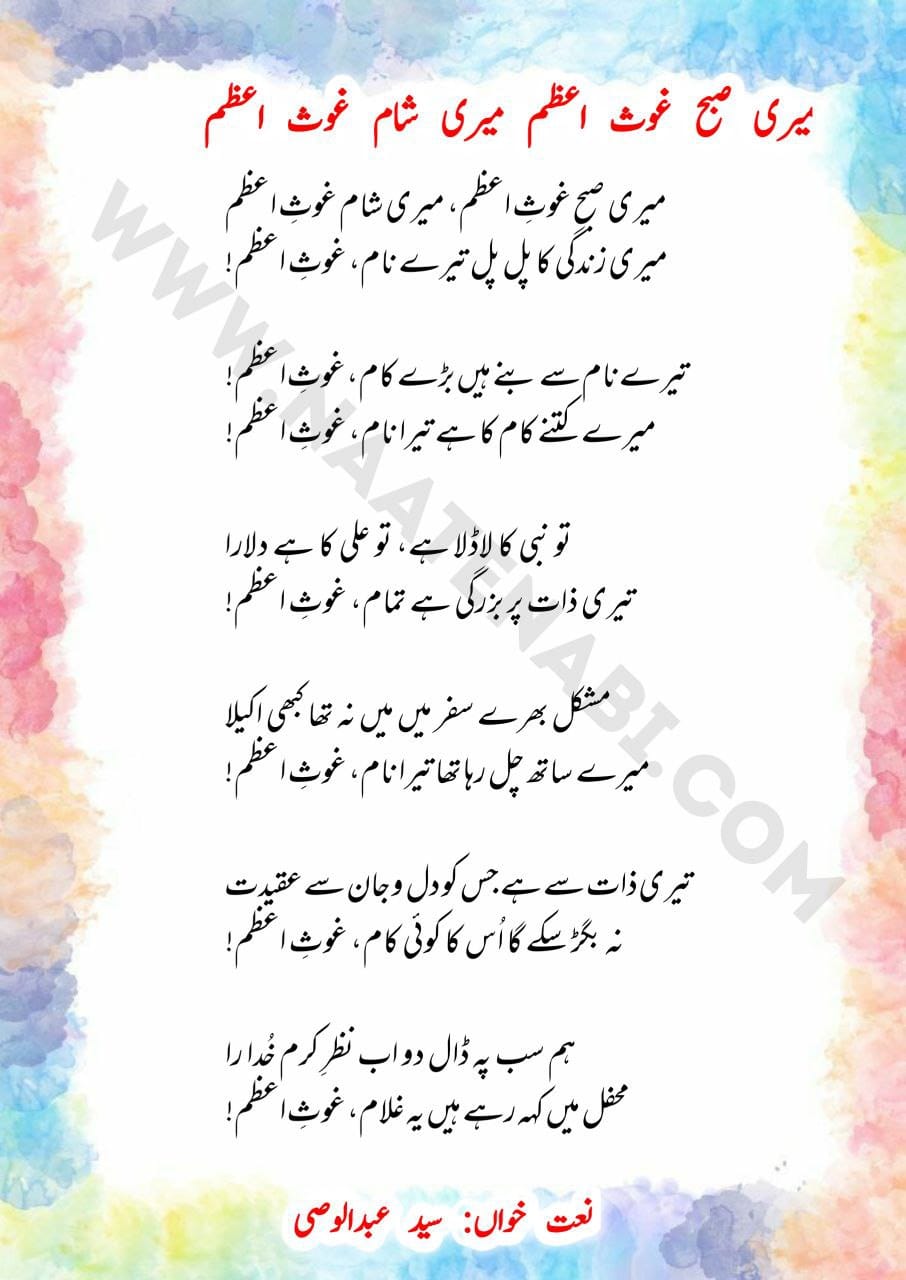 میری صبح غوث اعظم میری شام غوث اعظم
میری صبح غوثِ اعظم، میری شام غوثِ اعظم
میری زندگی کا پل پل تیرے نام، غوثِ اعظم!
تیرے نام سے بنے ہیں بڑے کام، غوثِ اعظم!
میرے کتنے کام کا ہے تیرا نام، غوثِ اعظم!
تو نبی کا لاڈلا ہے، تو علی کا ہے دلارا
تیری ذات پر بزرگی ہے تمام، غوثِ اعظم!
مشکل بھرے سفر میں میں نہ تھا کبھی اکیلا
میرے ساتھ چل رہا تھا تیرا نام، غوثِ اعظم!
تیری ذات سے ہے جس کو دل و جان سے عقیدت
نہ بگڑ سکے گا اُس کا کوئی کام، غوثِ اعظم!
ہم سب پہ ڈال دو اب نظرِ کرم خُدارا
محفل میں کہہ رہے ہیں یہ غلام، غوثِ اعظم!
نعت خواں: سید عبدالوصی
WWW.NAATENABI.COM